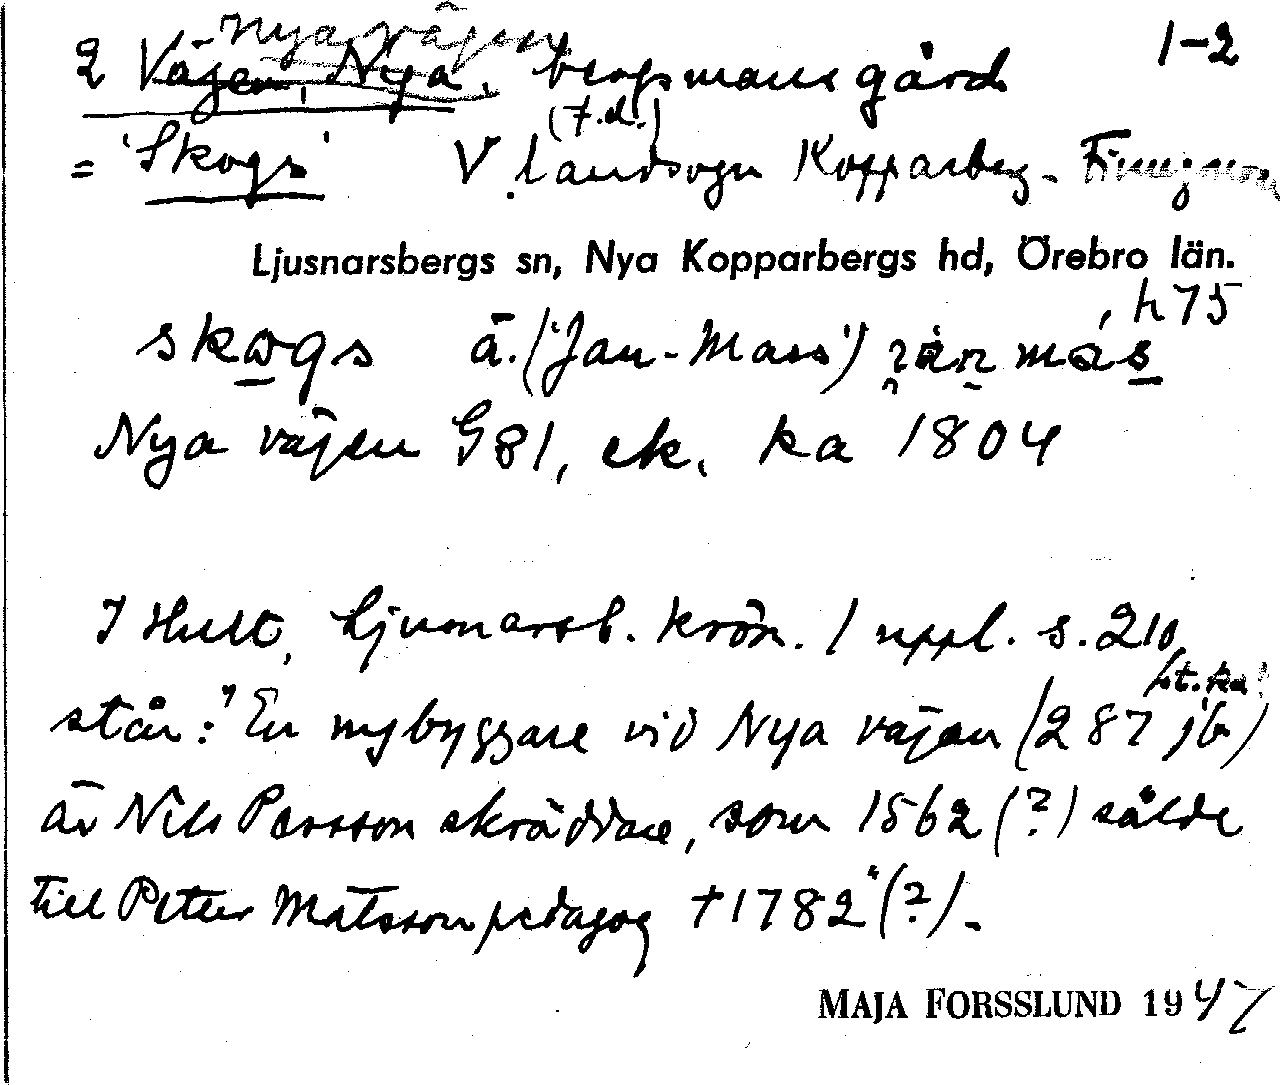 Nya vägen 1-2
2 Vägen, Nya, bergsmansgård
(f.d.)
= 'Skogs' V. landsvägen Kopparberg-
Ljusnarsbergs sn, Nya Kopparbergs hd, Örebro län.
, h75
skogs ä. ('Jan-Mass')
Nya vägen G81, ek. ka 1804
I Hult, Ljusnarsb. krön. 1 uppl. s. 210
står: "En nybyggare vid Nya vägen (287 jb)
är Nils Persson skräddare, som 1562 (?) sålde
till Peter Matsson pedagog †1782" (?).
MAJA FORSSLUND 1947